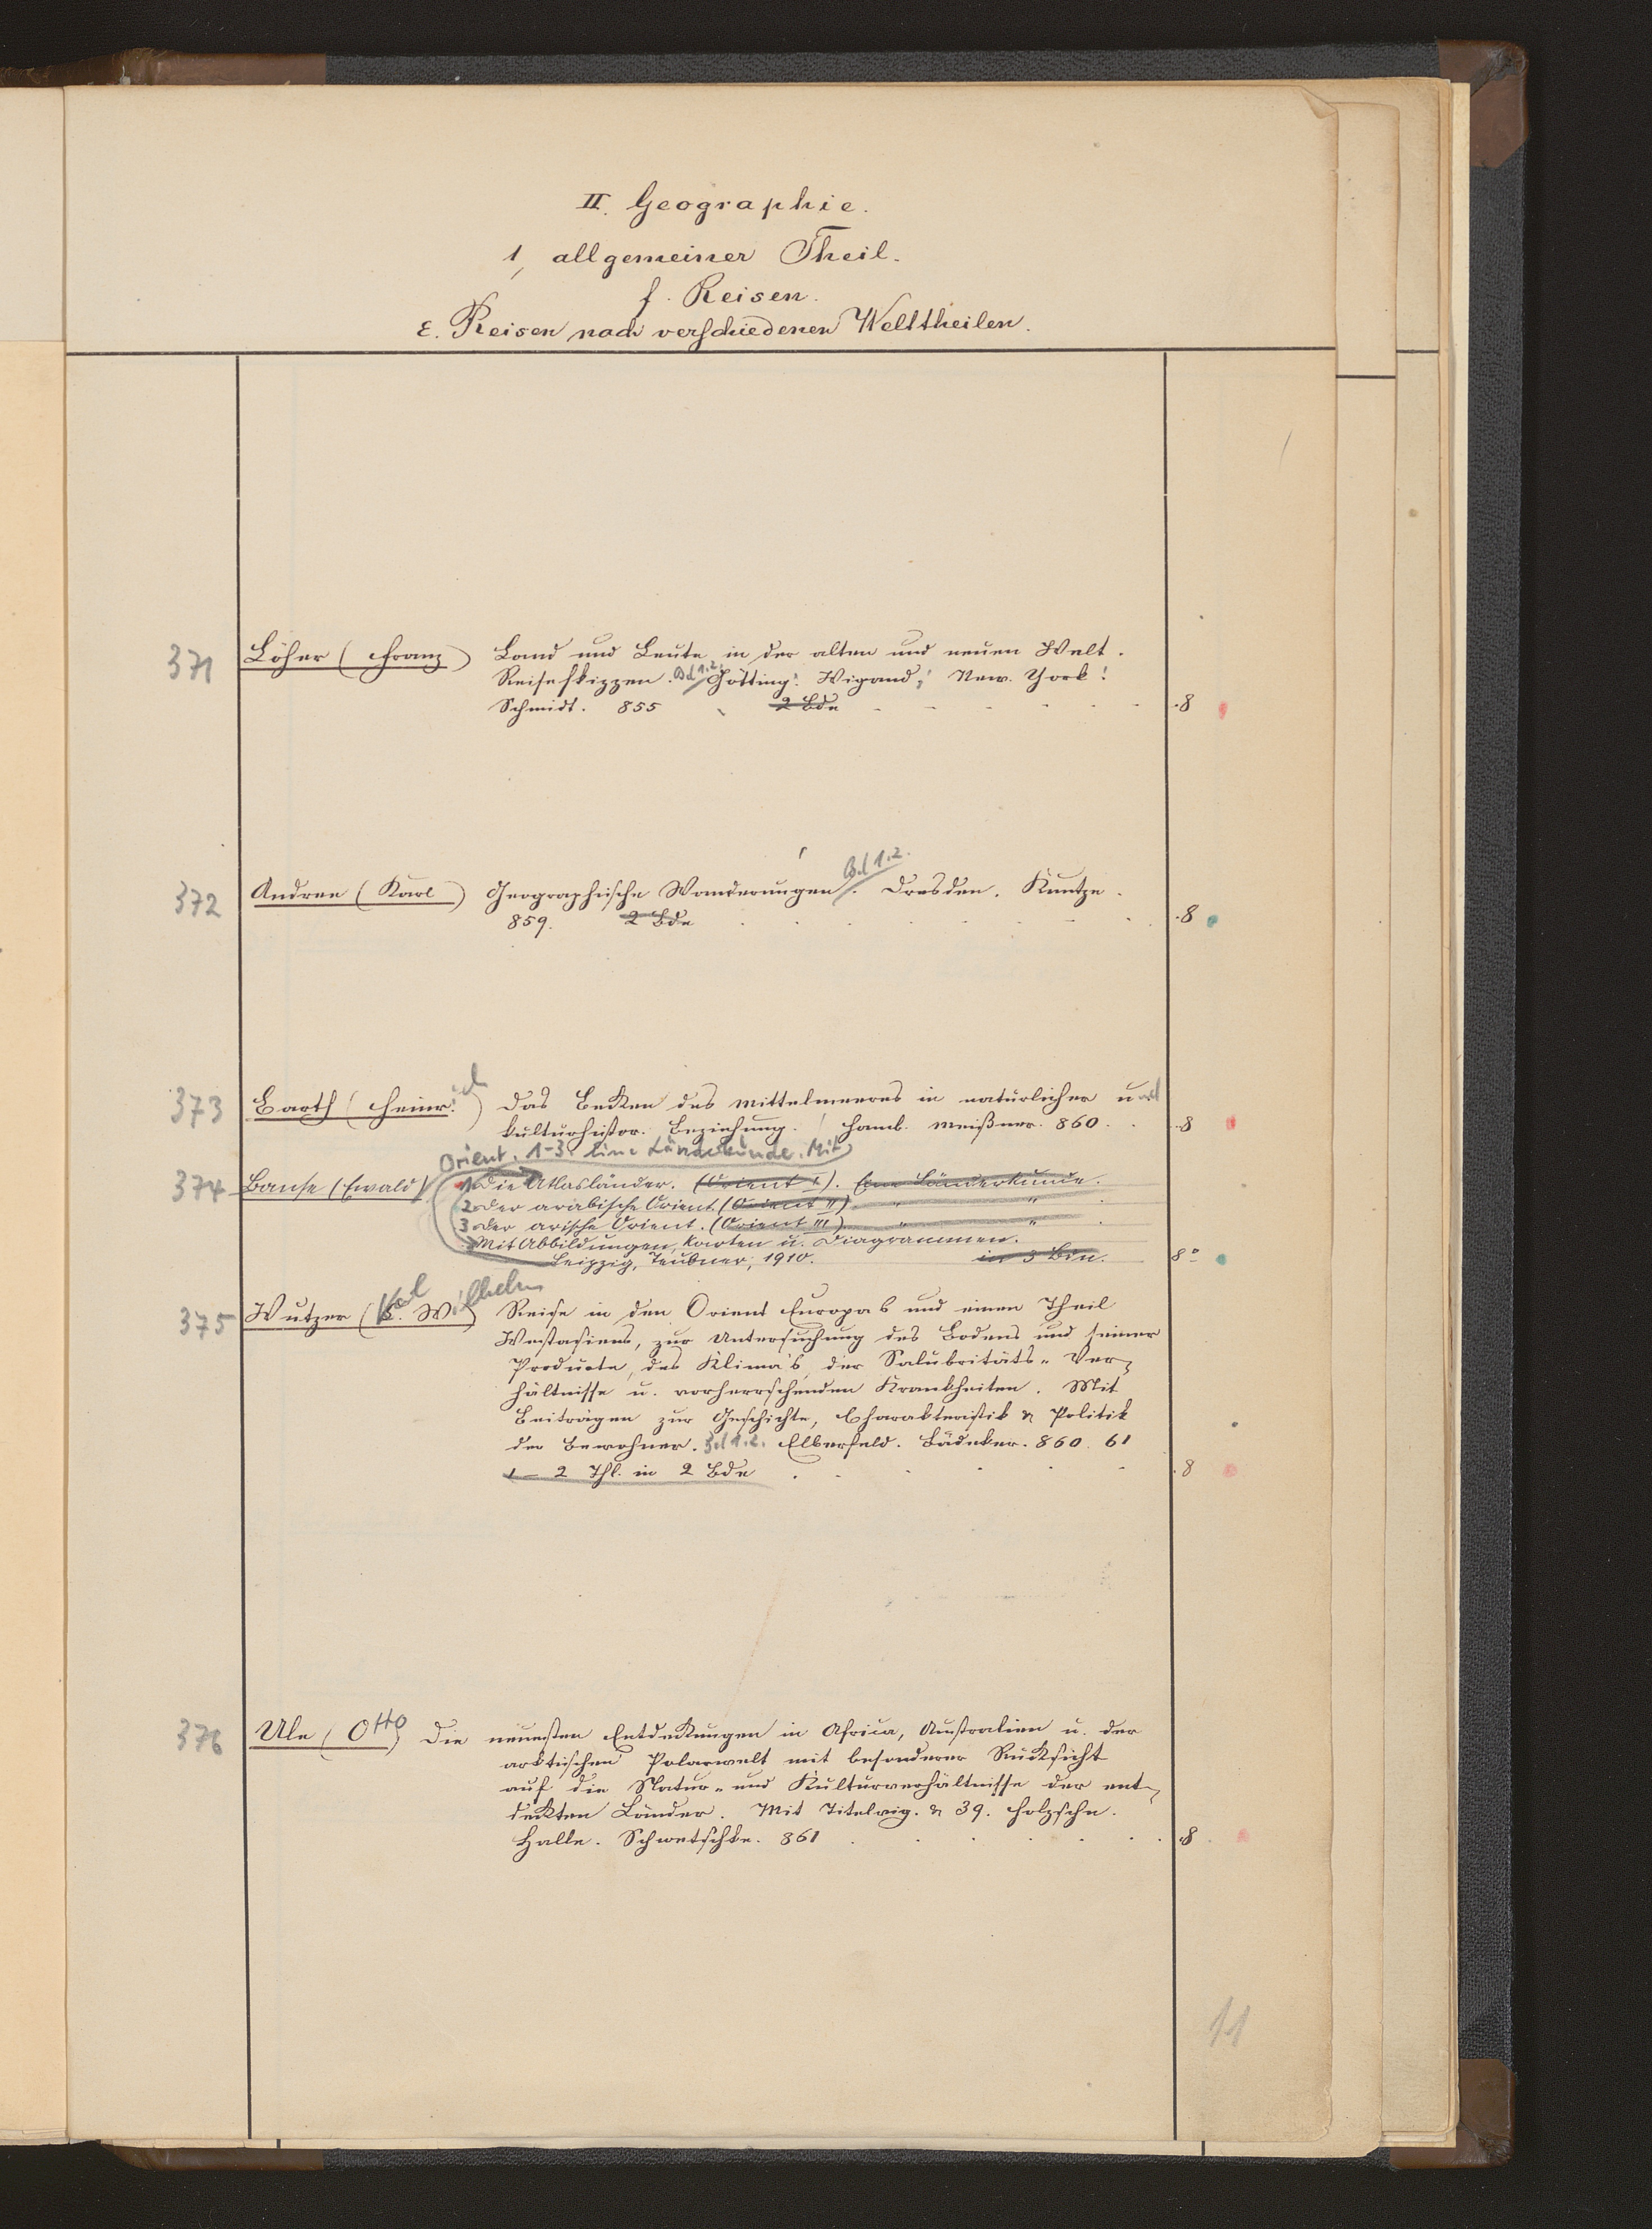 II. Geographie.
1, allgemeiner Theil.
f. Reisen.
ε. Reisen nach verschiedenen Welttheilen.
371 Löher (Franz) Land und Leute in der alten und neuen Welt.
Reiseskizzen. Bd 1.2. Götting. Wigand; New-York!
Schmidt. 855 2 Bde 8
372 Andree (Karl) Geographische Wanderungen. Bd 1.2. Dresden. Kuntze.
859. 2 Bde 8
373 Barth (Heinrich) Das Becken des Mittelmeeres in natürlicher und
kulturhistor. Beziehung. Hamb. Meißner. 860. 8
Orient. 1-3. Eine Länderkunde. Mit
374 Banse (Ewald) 1. Die Atlasländer. (Orient I). Eine Länderkunde.
2. Der arabische Orient (Orient II) " "
3. Der arische Orient. (Orient III) " "
Mit Abbildungen, Karten u. Diagrammen.
Leipzig, Teubner, 1910. in 3 Bdn. 8°
375 Wutzer (Karl Wilhelm) Reise in den Orient Europas und einen Theil
Westasiens, zur Untersuchung des Bodens und seiner
Producte, des Klima's, der Salubritäts-Ver-
hältnisse u. vorherrschenden Krankheiten. Mit
Beiträgen zur Geschichte, Charakteristik & Politik
der Bewohner. Bd 1.2. Elberfeld. Bädeker. 860. 61
1-2 Thl. in 2 Bde 8
376 Ule (Otto) Die neuesten Entdeckungen in Africa, Australien u. der
arktischen Polarwelt mit besonderer Rücksicht
auf die Natur- und Kulturverhältnisse der ent-
deckten Länder. Mit Titelvig. & 39. Holzschn.
Halle. Schwetschke. 861 8
11